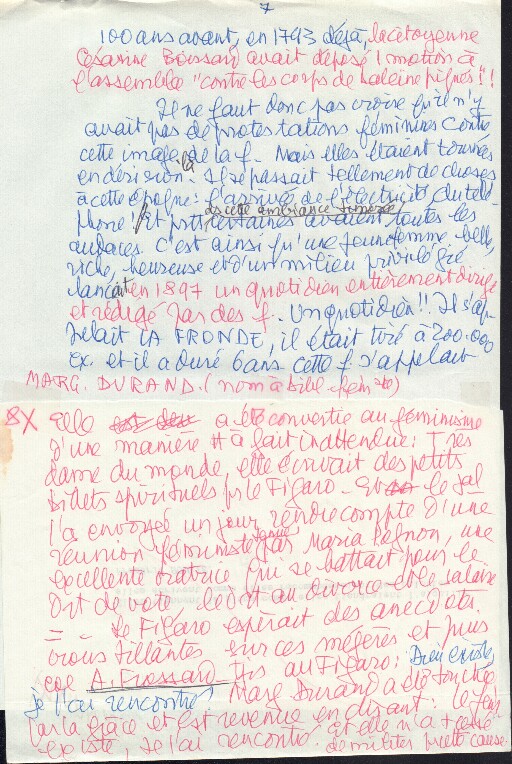 7
100 ans avant, en 1793 déjà, la citoyenne
Césarine Boissard avait déposé 1 motion à
l'assemblée "contre les corps de baleine pignés"!
Il ne faut donc pas croire qu'il n'y
avait pas de protestations féminines contre
cette image de la f. Mais elles étaient tournées
en dérision. Il se passait tellement de choses
à cette époque : l'arrivée de l'électricité, du télé-
phone! Et ds cette ambiance toutes les
audaces. C'est ainsi qu'une jeune femme belle,
riche, heureuse et d'un milieu privilégié
lançait en 1897 un quotidien entièrement dirigé
et rédigé par des f. Un quotidien!! Il s'ap-
pelait LA FRONDE, il était tiré à 200.000
ex. et il a duré 6 ans cette f s'appelait
MARG. DURAND. (nom à bibl. fém.)
8X Elle a été convertie au féminisme
d'une manière tt à fait inattendue : Très
dame du monde, elle écrivait des petits
billets spirituels pr le Figaro.
l'a envoyée un jour rendre compte d'une
réunion féministe tenue par Maria Pognon, une
excellente oratrice qui se battait pour le
Drt de vote - le drt au divorce - le salaire
= - Le Figaro espérait des anecdotes
croustillantes sur ces mégères et puis
A. Frossard au Figaro : Dieu existe,
je l'ai rencontré, Marg Durand a été touchée
par la grâce et est revenue en disant : le fém
existe, je l'ai rencontré et elle n'a + cessé
de militer pr cette cause